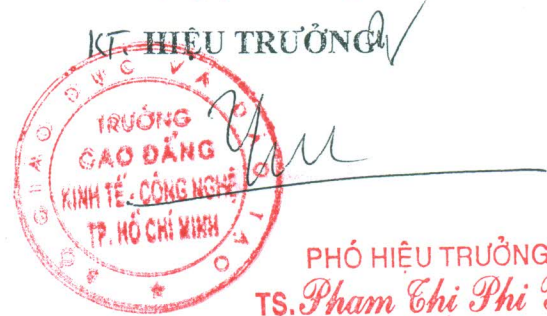 KT. HIỆU TRƯỞNG
BỘ GIÁO DỤC VÀ ĐÀO TẠO
TRƯỜNG
CAO ĐẲNG
KINH TẾ - CÔNG NGHỆ
TP. HỒ CHÍ MINH
PHÓ HIỆU TRƯỞNG
TS. Phạm Thi Phi